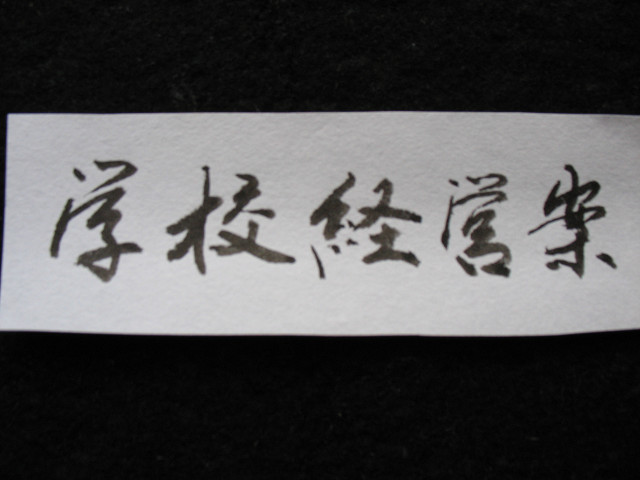 学校経営案